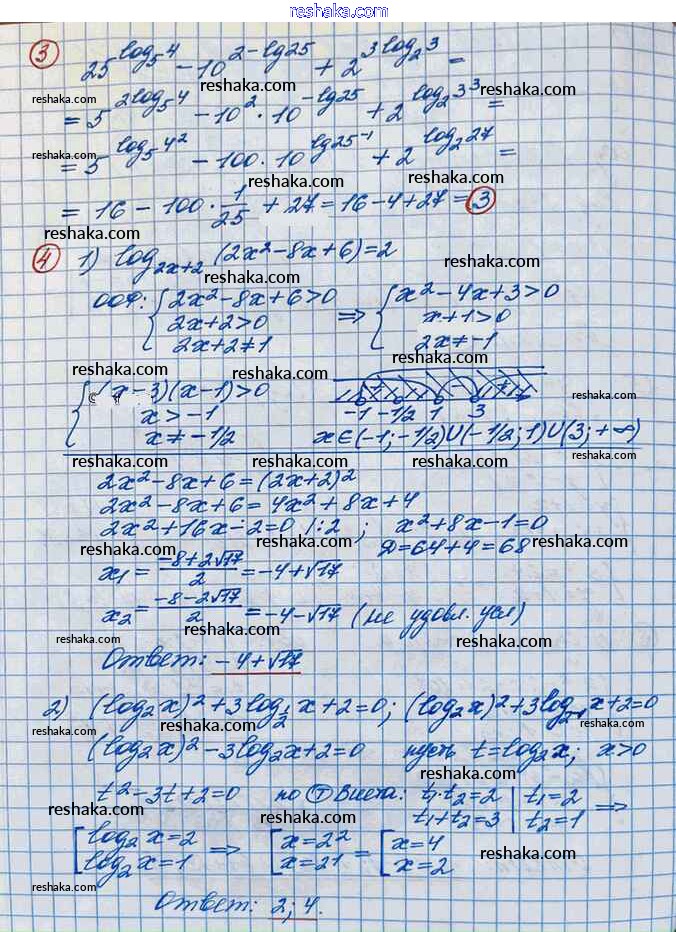 reshaka.com
③ 25^(log₅4) − 10^(2−lg25) + 2^(3log₂3) =
= 5^(2log₅4) − 10² · 10^(−lg25) + 2^(log₂3³) =
= 5^(log₅4²) − 100 · 10^(lg25⁻¹) + 2^(log₂27) =
= 16 − 100 · 1/25 + 27 = 16 − 4 + 27 = 3
④ 1) log₂ₓ₊₂ (2x²−8x+6) = 2
ООФ: { 2x²−8x+6>0 ⇒ { x²−4x+3>0
2x+2>0 x+1>0
2x+2≠1 2x≠−1
{ (x−3)(x−1)>0
x>−1 −1 −1/2 1 3
x≠−1/2 x∈(−1;−1/2)∪(−1/2;1)∪(3;+∞)
2x²−8x+6=(2x+2)²
2x²−8x+6=4x²+8x+4
2x²+16x−2=0 /:2 ; x²+8x−1=0
D=64+4=68
x₁ = (−8+2√17)/2 = −4+√17
x₂ = (−8−2√17)/2 = −4−√17 (не удовл. усл)
Ответ: −4+√17
2) (log₂x)²+3log_(1/2) x+2=0; (log₂x)²+3log₂₋₁ x+2=0
(log₂x)²−3log₂x+2=0 пусть t=log₂x; x>0
t²−3t+2=0 по Т Виета: t₁·t₂=2 | t₁=2 ⇒
t₁+t₂=3 | t₂=1
[ log₂x=2 ⇒ [ x=2² = [ x=4
log₂x=1 x=2¹ x=2
Ответ: 2; 4.